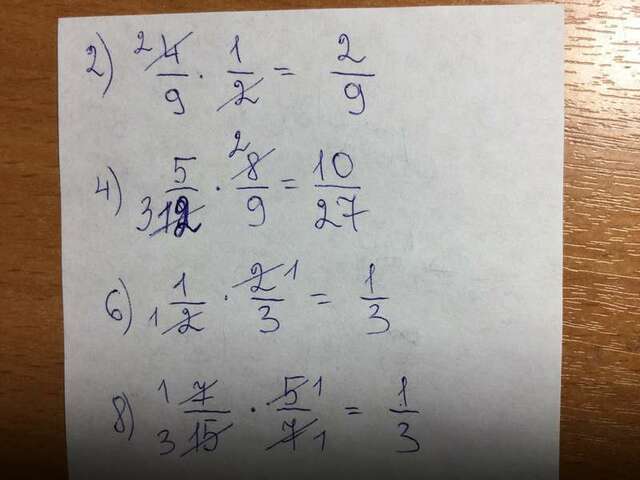 2) 2 4/9 · 1/2 = 2/9
4) 5/3 12 · 2 8/9 = 10/27
6) 1/1 2 · 2 1/3 = 1/3
8) 1 7/3 15 · 5 1/7 1 = 1/3